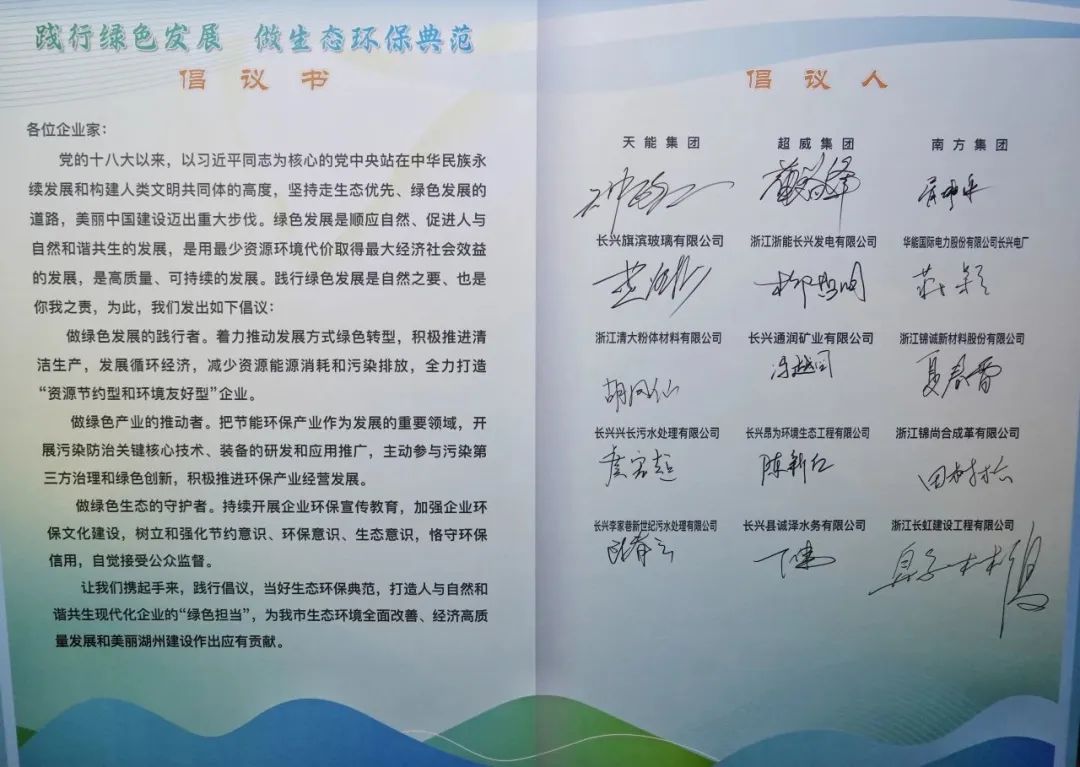 践行绿色发展 做生态环保典范
倡议书
各位企业家：
党的十八大以来，以习近平同志为核心的党中央站在中华民族永
续发展和构建人类文明共同体的高度，坚持走生态优先、绿色发展的
道路，美丽中国建设迈出重大步伐。绿色发展是顺应自然、促进人与
自然和谐共生的发展，是用最少资源环境代价取得最大经济社会效益
的发展，是高质量、可持续的发展。践行绿色发展是自然之要、也是
你我之责，为此，我们发出如下倡议：
做绿色发展的践行者。着力推动发展方式绿色转型，积极推进清
洁生产，发展循环经济，减少资源能源消耗和污染排放，全力打造
“资源节约型和环境友好型”企业。
做绿色产业的推动者。把节能环保产业作为发展的重要领域，开
展污染防治关键核心技术、装备的研发和应用推广，主动参与污染第
三方治理和绿色创新，积极推进环保产业经营发展。
做绿色生态的守护者。持续开展企业环保宣传教育，加强企业环
保文化建设，树立和强化节约意识、环保意识、生态意识，恪守环保
信用，自觉接受公众监督。
让我们携起手来，践行倡议，当好生态环保典范，打造人与自然和
谐共生现代化企业的“绿色担当”，为我市生态环境全面改善、经济高质
量发展和美丽湖州建设作出应有贡献。
倡议人
天能集团 超威集团 南方集团
长兴旗滨玻璃有限公司 浙江浙能长兴发电有限公司 华能国际电力股份有限公司长兴电厂
浙江清大粉体材料有限公司 长兴通润矿业有限公司 浙江锦诚新材料股份有限公司
胡凤仙 冯越闰 夏春雷
长兴兴长污水处理有限公司 长兴昂为环境生态工程有限公司 浙江锦尚合成革有限公司
陈新仁
长兴李家巷新世纪污水处理有限公司 长兴县诚泽水务有限公司 浙江长虹建设工程有限公司